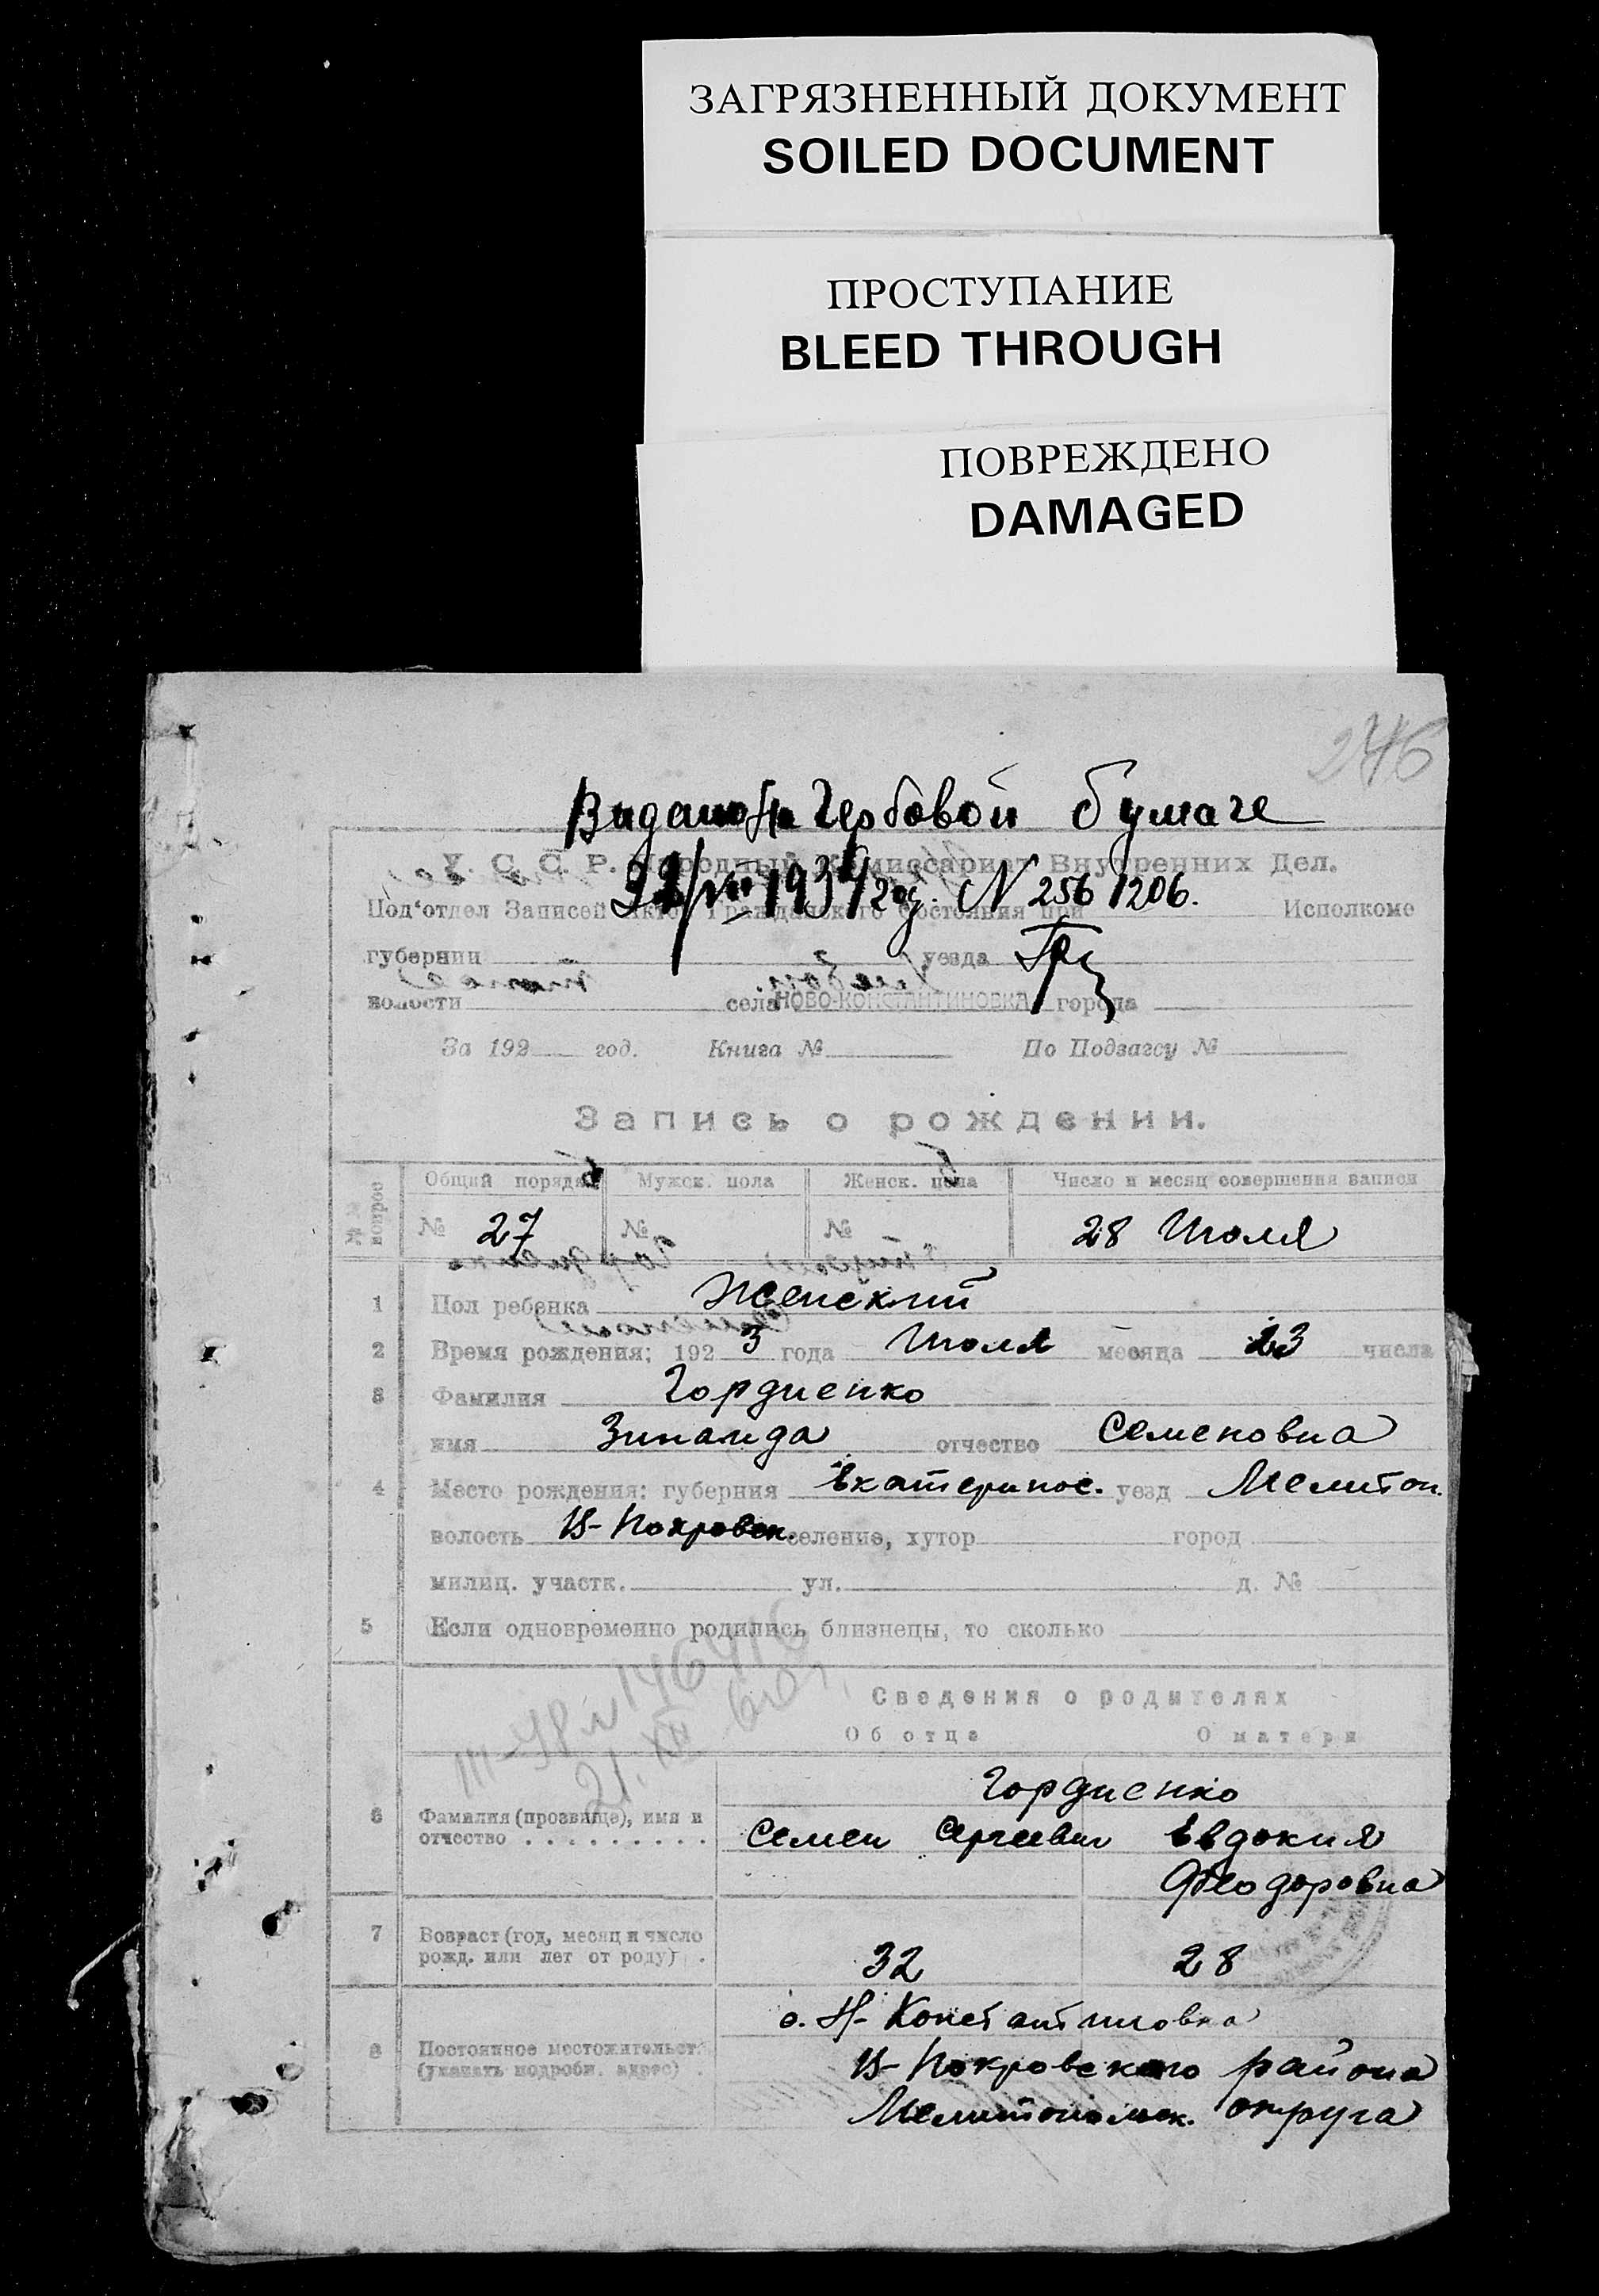 ЗАГРЯЗНЕННЫЙ ДОКУМЕНТ
SOILED DOCUMENT
ПРОСТУПАНИЕ
BLEED THROUGH
ПОВРЕЖДЕНО
DAMAGED
246
Видано На Гербовой бумаге
У. С. С. Р. Народный Комиссариат Внутренних Дел.
22/VIII 1934 год. N 256 1206.
Под'отдел Записей Актов Гражданского Состояния при Исполкоме
губернии уезда
волости села НОВО-КОНСТАНТИНОВКА города
За 192 год. Книга № По Подзагсу №
Запись о рождении.
№№ вопрос Общий порядк Мужск. пола Женск. пола Число и месяц совершения записи
№ 27 № № 28 Июля
1 Пол ребенка Женский
2 Время рождения: 192 3 года Июля месяца 23 числа
3 Фамилия Гордиенко
имя Зинаида отчество Семеновна
4 Место рождения: губерния Екатеринос. уезд Мелитоп.
волость В-Покровск. селение, хутор город
милиц. участк. ул. д. №
5 Если одновременно родились близнецы, то сколько
Сведения о родителях
Об отце О матери
Гордиенко
6 Фамилия (прозвище), имя и
отчество . . . . . . . . . Семен Сергеевич Евдокия
Феодоровна
7 Возраст (год, месяц и число
рожд. или лет от роду) . 32 28
с. Н-Константиновка
8 Постоянное местожительст.
(указать подробн. адрес) . В-Покровского района
Мелитопольск. округа